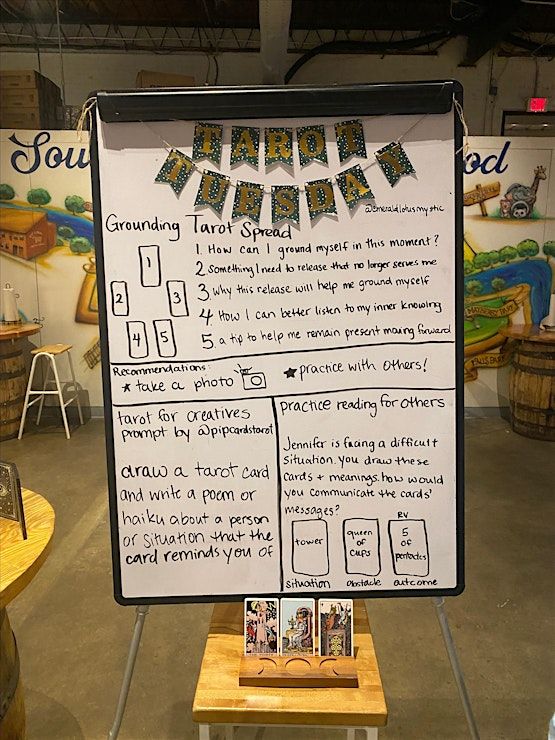 TAROT
TUESDAY
@emeraldlotusmystic
Grounding Tarot Spread
1
2
3
4
5
1. How can I ground myself in this moment?
2. Something I need to release that no longer serves me
3. why this release will help me ground myself
4. How I can better listen to my inner knowing
5. a tip to help me remain present moving forward
Recommendations:
★ take a photo
★ practice with others!
tarot for creatives
prompt by @pipcardstarot
draw a tarot card
and write a poem or
haiku about a person
or situation that the
card reminds you of
practice reading for others
Jennifer is facing a difficult
situation. you draw these
cards + meanings. how would
you communicate the cards'
messages?
tower
queen
of
cups
RV
5
of
pentacles
situation
obstacle
outcome
Sou
od
EXIT